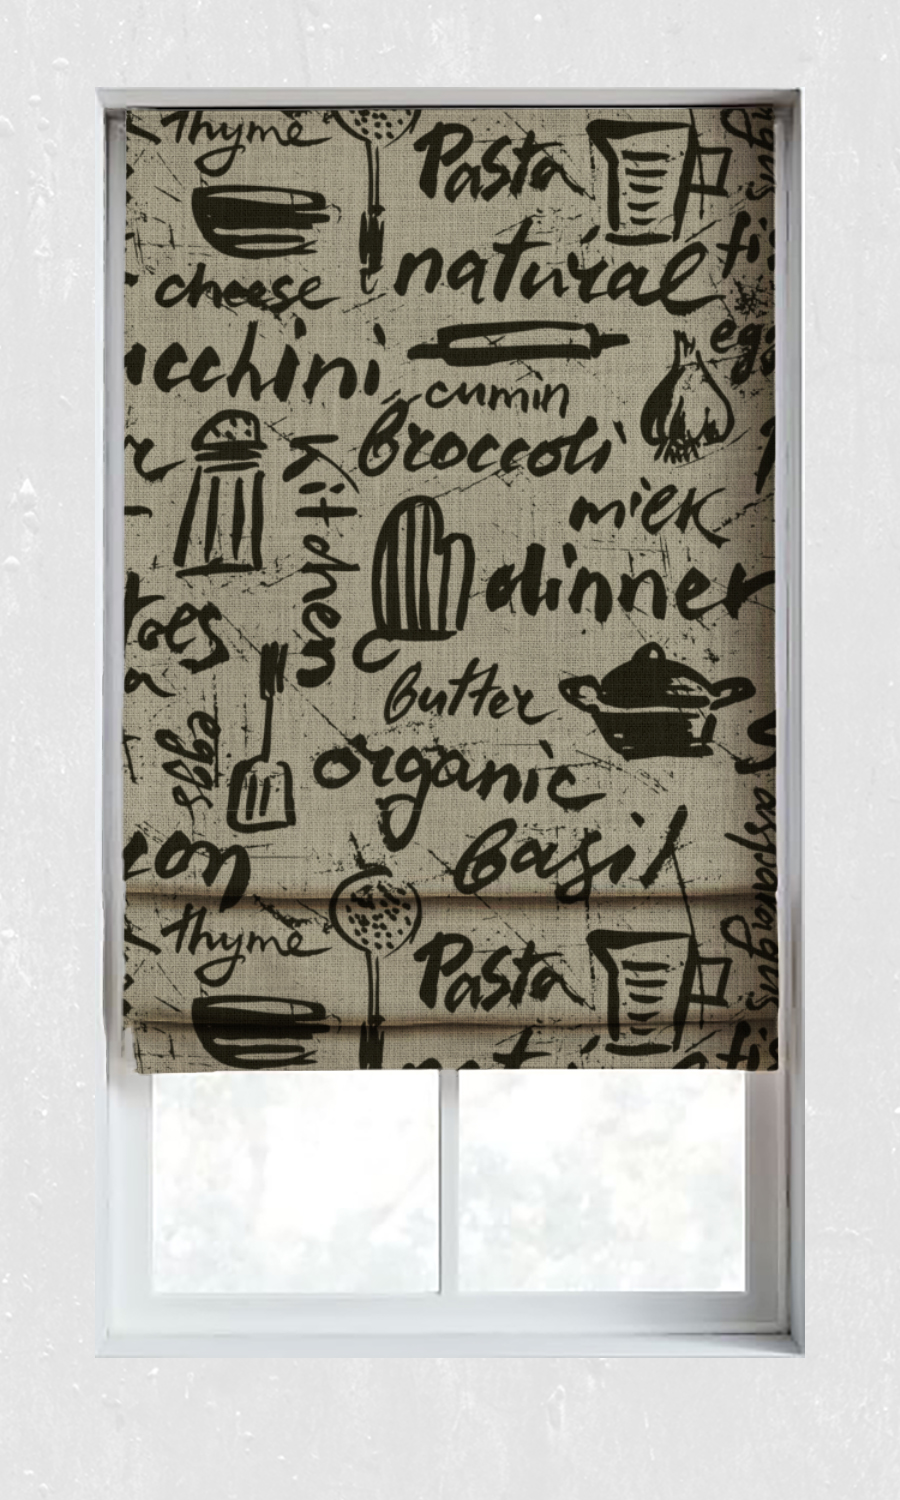 thyme
Pasta
natural
cheese
ucchini
cumin
egg
broccoli
kitchen
milk
dinner
toes
butter
eggs
organic
basil
asparagus
thyme
Pasta